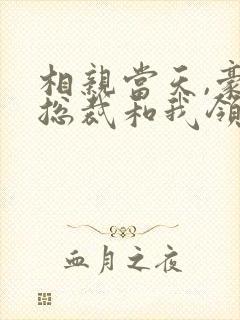 相親當天,豪
總裁和我領
血月之夜